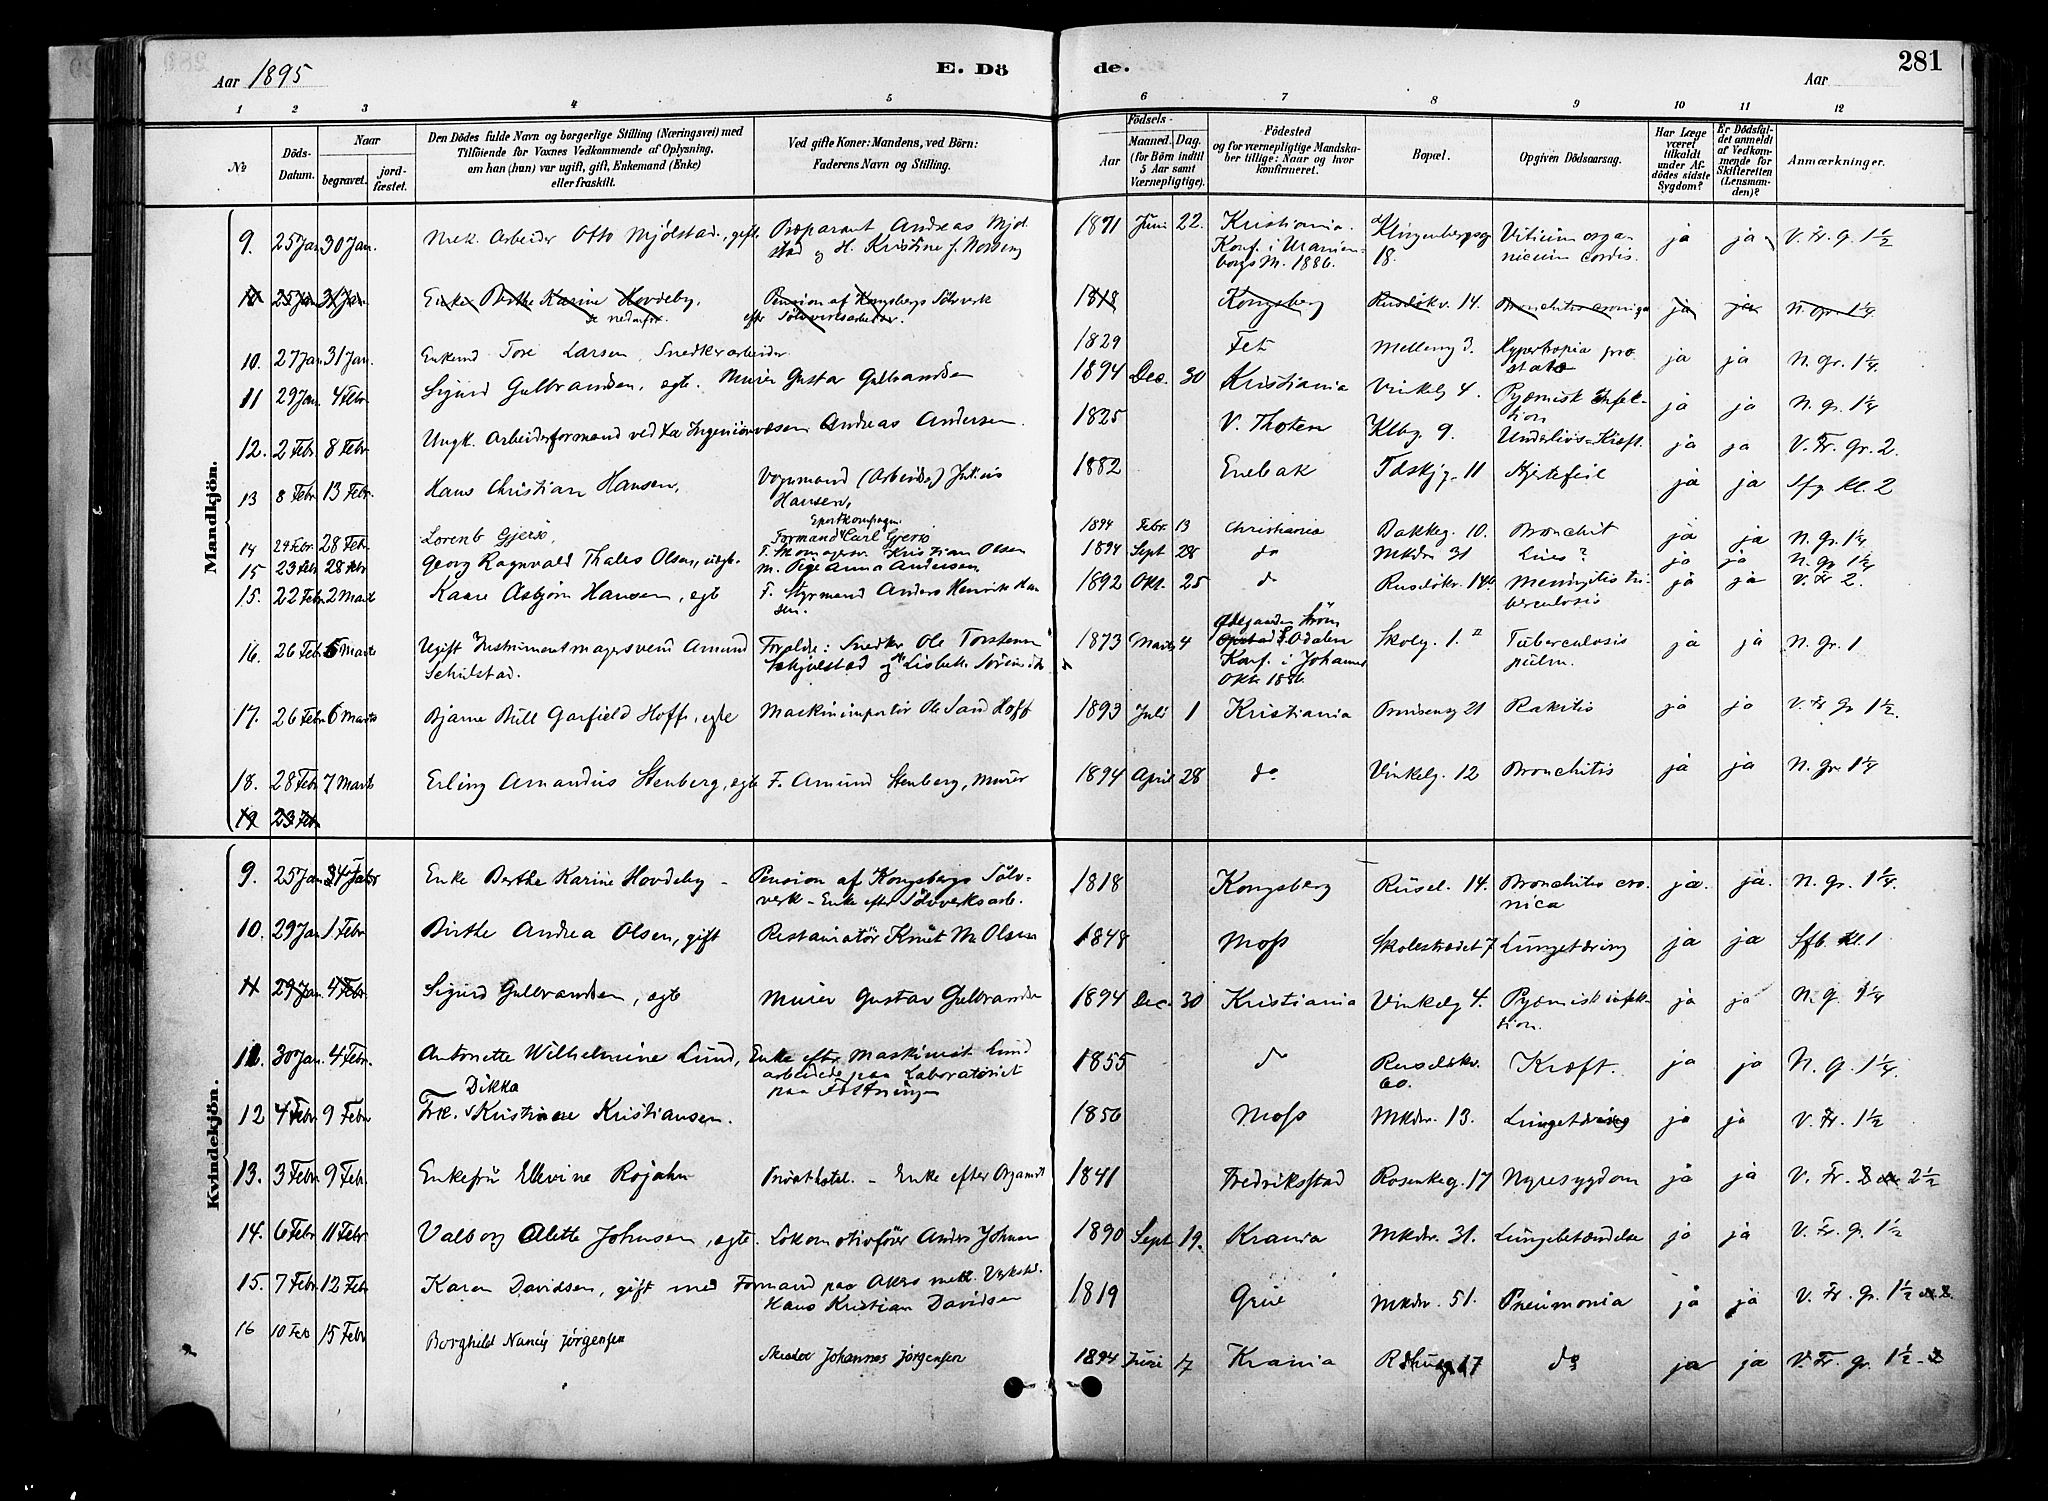 281
Aar 1895
E. Dö
de.
Aar
1 2 3 4 5 6 7 8 9 10 11 12
No
Döds-Datum.
Naar
begravet.
jordfæstet.
Den Dödes fulde Navn og borgerlige Stilling (Næringsvei) med
Tilföiende for Voxnes Vedkommende af Oplysning,
om han (hun) var ugift, gift, Enkemand (Enke)
eller fraskilt.
Ved gifte Koner: Mandens, ved Börn:
Faderens Navn og Stilling.
Födsels-
Aar
Maaned. Dag.
(for Börn indtil
5 Aar samt
Værnepligtige).
Födested
og for værnepligtige Mandska-
ber tillige: Naar og hvor
konfirmeret.
Bopæl.
Opgiven Dödsaarsag.
Har Læge
været
tilkaldt
under Af-
dödes sidste
Sygdom?
Er Dödsfal-
det anmeldt
af Vedkom-
mende for
Skifteretten
(Lensman-
den)?
Anmærkninger.
Mandkjön.
9. 25 Jan 30 Jan. Mek. Arbeider Otto Mjölstad, gift. Præparant Andreas Mjöl 1871 Juni 22. Kristiania. Klingenbergsg Vitium orga ja ja V. Fr. g. 1½
stad og H. Kristine f. Konf. i Uranien- 18. nicum cordis.
borgs M. 1886.
10 25 Jan 31 Jan. Enke Berthe Karine Hovdeby. Pension af Kongsbergs Sölvverk 1818 Kongsberg Ruselökv. 14. Bronchitis cronica ja ja N. gr. 1¼
se nedenfor. efter Sölvverksarbeider.
10. 27 Jan 31 Jan. Enkemd Tore Larsen, Snedkerarbeider 1829 Fet Mellemg 3. Hypertropia pro ja ja N. gr. 1¼
stata
11 29 Jan. 4 Febr. Sigurd Gulbrandsen, egt. Murer Gustav Gulbrandsen 1894 Dec. 30 Kristiania Vinkelg 4. Pyæmisk Infek- ja ja N. gr. 1¼
tion
12. 2 Febr. 8 Febr Ungk. Arbeidsformand ved Ingeniörvæsen Andreas Andersen. 1825 V. Thoten Klbg. 9. Underlivs-Kræft. ja ja V. Fr. Gr. 2.
13 8 Febr 13 Febr. Hans Christian Hansen, Vognmand (Arbeider) Julius 1882 Enebak 11 Hjertefeil ja ja Sfg Kl. 2
Hansen,
14 24 Febr. 28 Febr Lorentz Gjersö, Formand Carl Gjersö 1894 Febr. 13 Christiania Bakkeg. 10. Bronchit ja ja N. gr. 1¼
15 23 Febr 28 Febr Georg Ragnvald Thales Olsen, uægt. F. Skomagersv. Kristian Olsen 1894 Sept 28 do Mkdv 31 Lues? ja ja N. gr 1¼
M. Pige Anna Andersen.
15. 22 Febr. 2 Marts Kaare Asbjörn Hansen, egt F. Styrmand Anders Henrik Han 1892 Okt. 25 do Rusdökv. 14b Meningitis tu ja ja V. Fr 2.
sen. berculosis
16. 26 Febr 5 Marts Ugift Instrumentmagersvend Amund Foræld: Snedker Ole Torstensen 1873 Marts 4 S. Odalen Skolg. 1. II Tuberculosis ja ja N. Gr. 1
Schulstad. Schjulstad og Lisbeth Konf. i Johannes pulm.
Okt. 1886.
17. 26 Febr 6 Marts Bjarne Bull Garfield Hoff, egte Maskinimportör Ole Sand Hoff 1893 Juli 1 Kristiania 21 Rakitis ja ja V. Fr Gr 1½.
18. 28 Febr 7 Marts Erling Amandus Stenberg, egte F. Amund Stenberg, Murer 1894 April 28 do Vinkelg. 12 Bronchitis ja ja N. Gr. 1¼
19 23 Feb
Kvindekjön.
9. 25 Jan Enke Berthe Karine Hovdeby - Pension af Kongsbergs Sölv- 1818 Kongsberg Rusel. 14. Bronchitis cro- ja. ja. N. gr. 1¼.
verk - Enke efter Sölvverksarb. nica
10. 29 Jan 1 Febr Birthe Andrea Olsen, gift Restauratör Knut M. Olsen 1848 Moss Skolestrædet 7 Lungetæring ja ja Sfb. Kl. 1
11 29 Jan. 4 Febr Sigurd Gulbrandsen, egte Murer Gustav Gulbrandsen 1894 Dec. 30 Kristiania Vinkelg 4. Pyæmisk infek- ja ja N. g. 1¼
tion.
11. 30 Jan. 4 Febr. Antonette Wilhelmine Lund, Enke efter Maskinist Lund 1855 do Rusdökv. Kræft. ja ja N. g. 1¼.
arbeidede paa Laboratoriet 60.
paa Fæstningen
Dikka
12 4 Febr 9 Febr Frk. Kristiane Kristiansen. 1850 Moss Mkdv. 13. Lungetæring ja ja V. Fr. 1½
13. 3 Febr 9 Febr. Enkefru Ellevine Rojahn Privathotel. - Enke efter Organist 1841 Fredriksstad Rosenkg. 17 Nyresygdom ja ja V. Fr. 2½
14. 6 Febr 11 Febr. Valborg Alette Johnsen, egte. Lokomotivförer Anders Johnsen 1890 Sept 19. Krania Mkdv. 31. Lungebetændelse ja ja V. Fr. gr. 1½
15. 7 Febr 12 Febr Karen Davidsen, gift med Formand paa Akers mek. Verksted. 1819 Grue Mkdv. 51. Pneumonia ja ja V. Fr. gr. 1½
Hans Kristian Davidsen
16 10 Feb 15 Febr Borghild Nancy Jörgensen Johannes Jörgensen 1894 Juni 17 Krania 17 do ja ja V. Fr. gr. 1½